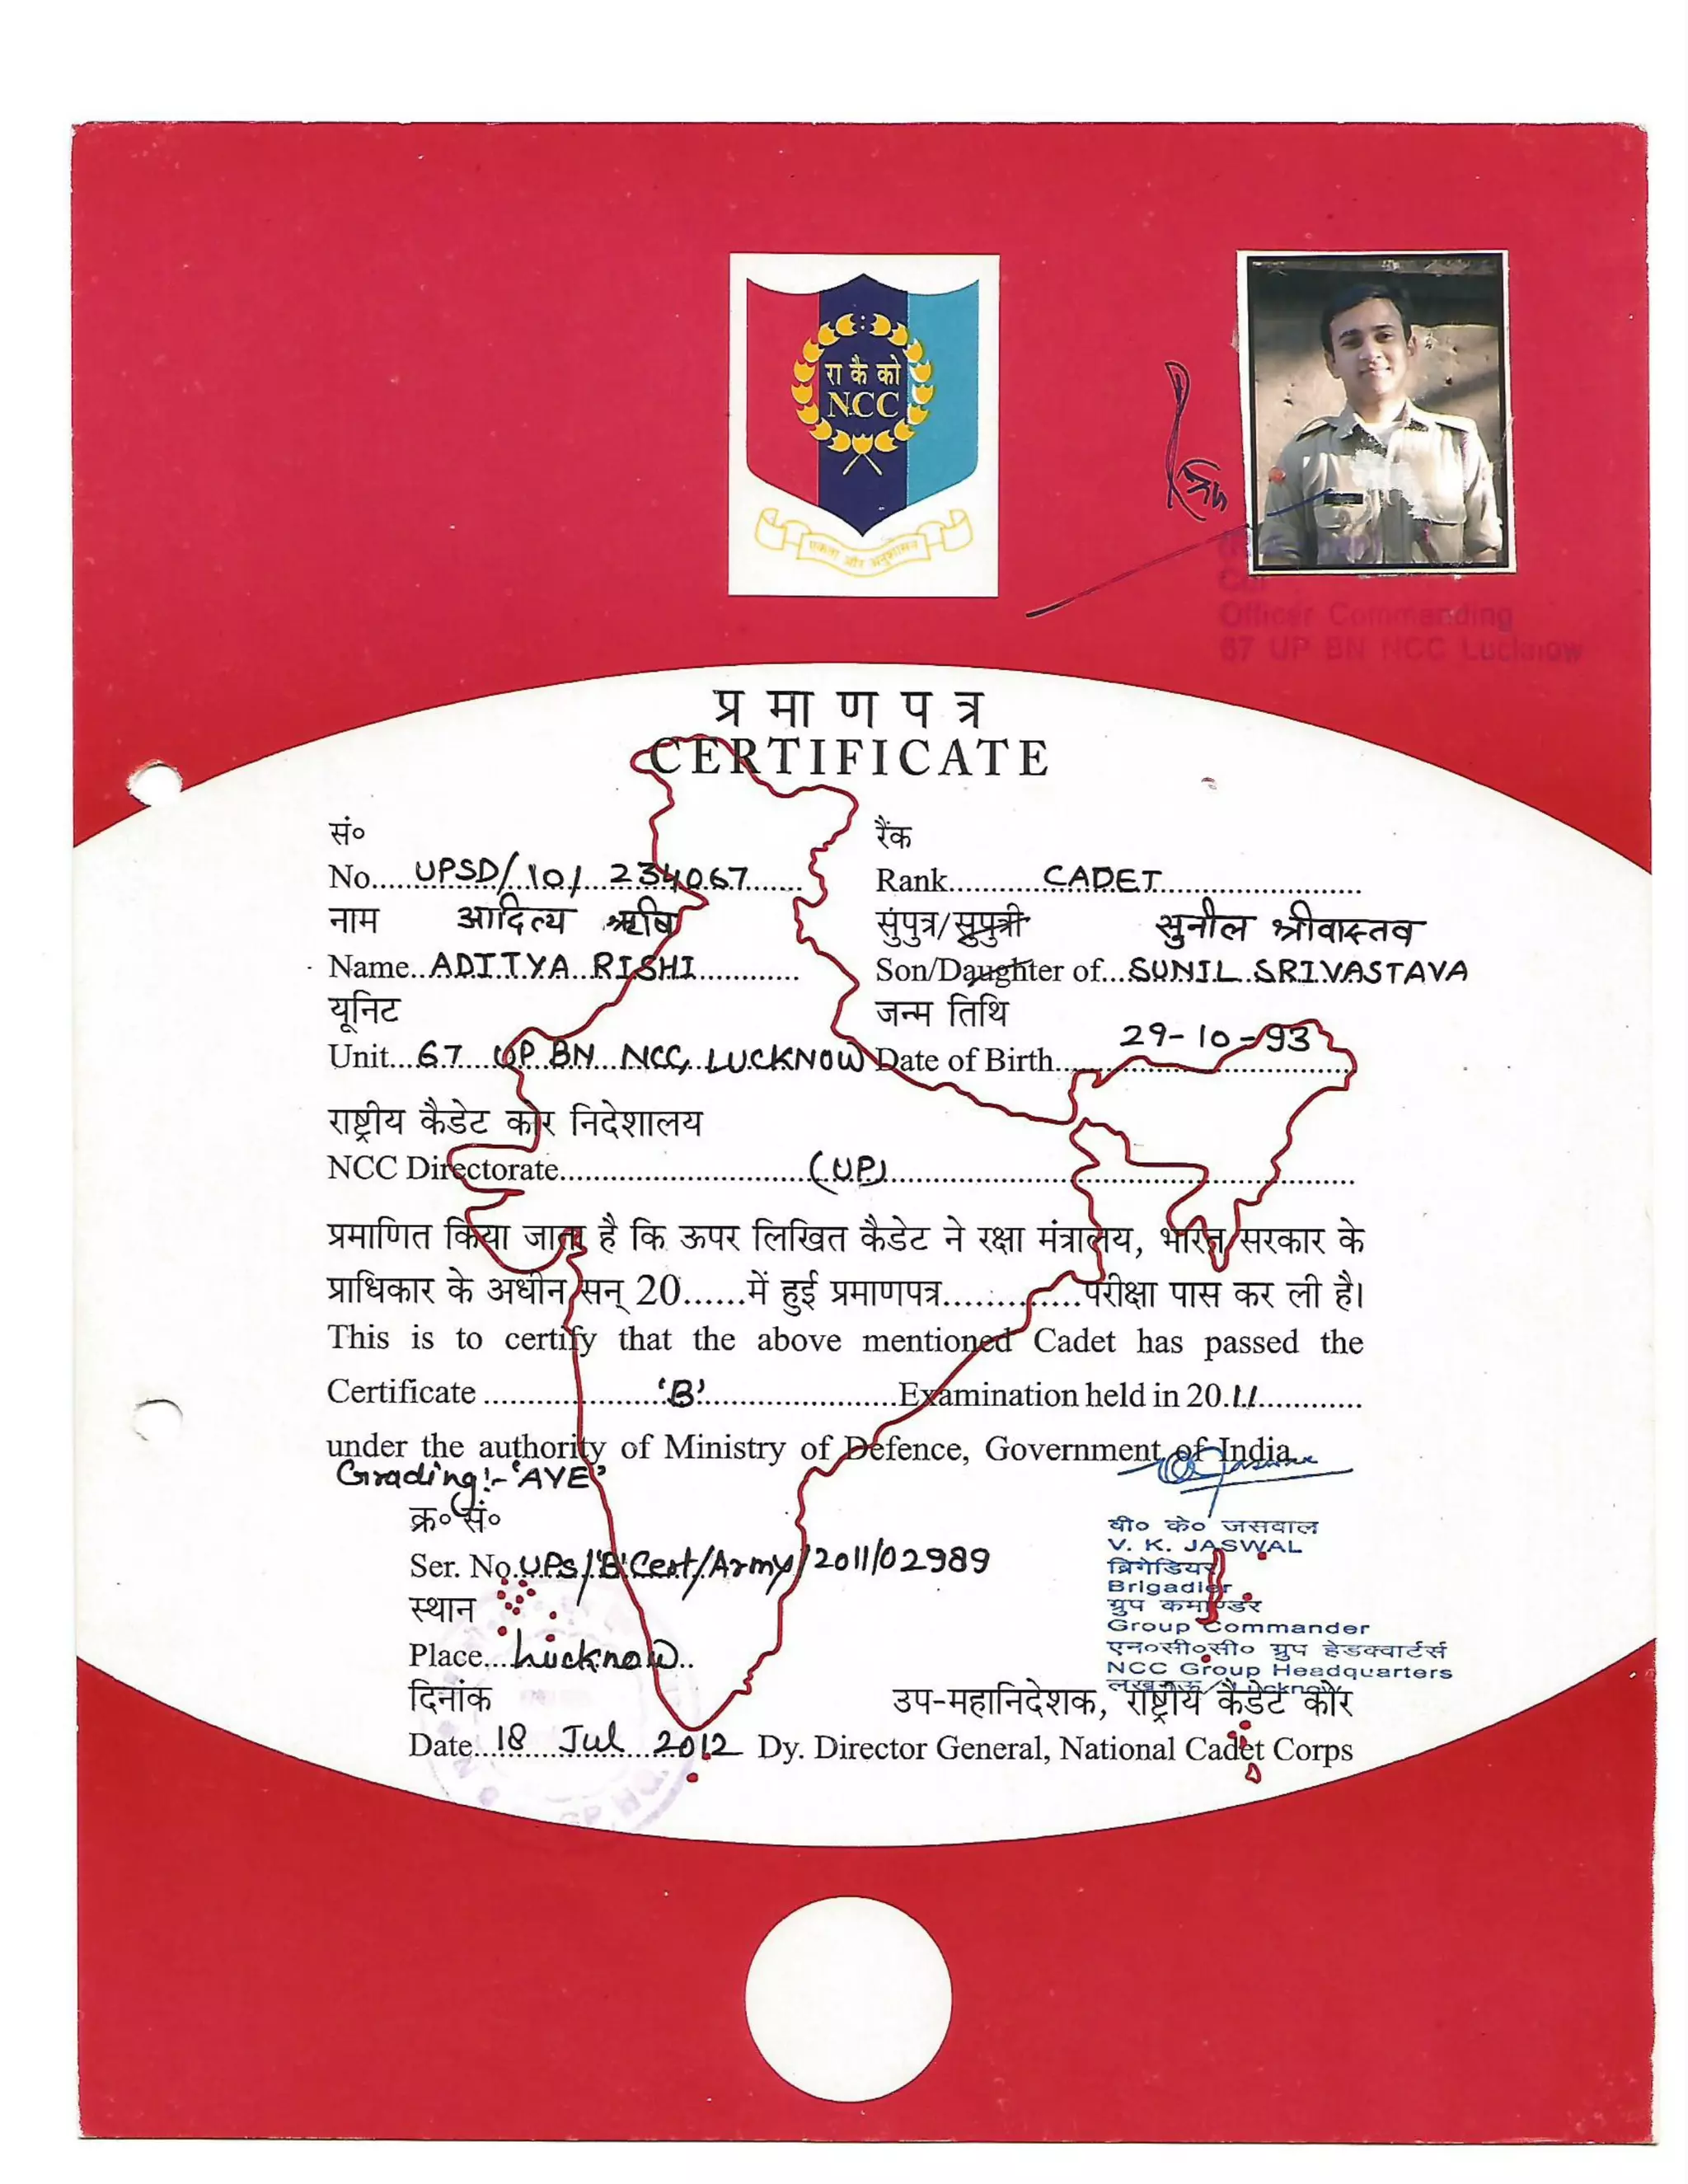 रा कै को
NCC
एकता और अनुशासन
Officer Commanding
67 UP BN NCC Lucknow
प्र मा ण प त्र
CERTIFICATE
सं० रैंक
No..... UPSD/10/ 234067 ..... Rank..... CADET .....
नाम आदित्य ऋषि सुपुत्र/सुपुत्री सुनील श्रीवास्तव
Name.. ADITYA RISHI ..... Son/Daughter of... SUNIL SRIVASTAVA
यूनिट जन्म तिथि
Unit... 67 UP BN NCC, LUCKNOW Date of Birth... 29-10-93
राष्ट्रीय कैडेट कोर निदेशालय
NCC Directorate..... (UP) .....
प्रमाणित किया जाता है कि ऊपर लिखित कैडेट ने रक्षा मंत्रालय, भारत सरकार के
प्राधिकार के अधीन सन् 20......में हुई प्रमाणपत्र..............परीक्षा पास कर ली है।
This is to certify that the above mentioned Cadet has passed the
Certificate ..... 'B' ..... Examination held in 20.11.....
under the authority of Ministry of Defence, Government of India
Grading:- 'AYE'
क्र० सं०
Ser. No. UPS/'B'Cert/Army/2011/02989
स्थान
Place... Lucknow..
दिनांक
Date... 18 Jul 2012
वी० के० जसवाल
V. K. JASWAL
ब्रिगेडियर
Brigadier
ग्रुप कमाण्डर
Group Commander
एन०सी०सी० ग्रुप हेडक्वार्टर्स
NCC Group Headquarters
लखनऊ/Lucknow
उप-महानिदेशक, राष्ट्रीय कैडेट कोर
Dy. Director General, National Cadet Corps